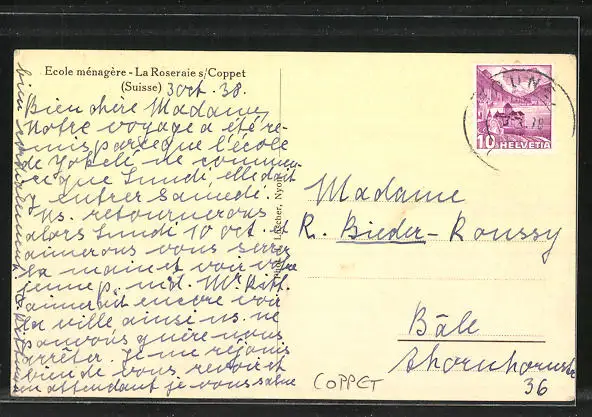 Ecole ménagère - La Roseraie s/Coppet
(Suisse) 3 oct. 38.
Bien chère Madame,
Notre voyage a été re-
mis parce que l'école
de ne commen-
ce que Lundi, elle doit
y entrer Samedi.
Ns. retournerons
alors Lundi 10 oct. et
aimerons vous serrer
la main et voir votre
jeune p. Mr.
aimerait encore voir
la ville ainsi ns. ne
pouvons guère nous
arrêter. Je me réjouis
bien de vous revoir et
en attendant je vous salue
bien cordialement
HELVETIA
10
Madame
R. Bieder-Roussy
Bâle
36
COPPET